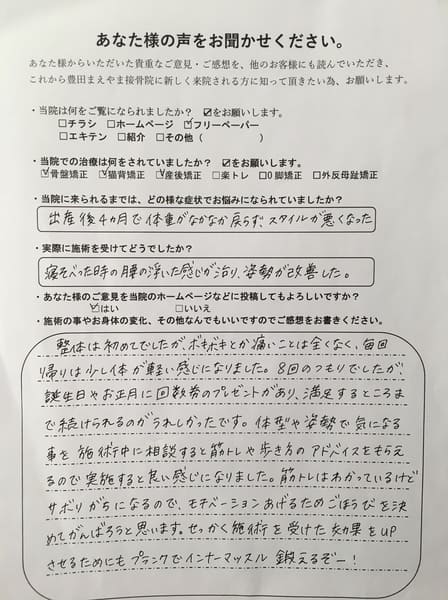 あなた様の声をお聞かせください。
あなた様からいただいた貴重なご意見・ご感想を、他のお客様にも読んでいただき、
これから豊田まえやま接骨院に新しく来院される方に知って頂きたい為、お願いします。
・当院は何をご覧になられましたか? ☑をお願いします。
□チラシ □ホームページ ☑フリーペーパー
□エキテン □紹介 □その他 ( )
・当院での治療は何をされていましたか? ☑をお願いします。
☑骨盤矯正 ☑猫背矯正 ☑産後矯正 □楽トレ □O脚矯正 □外反母趾矯正
・当院に来られるまでは、どの様な症状でお悩みになられていましたか?
出産後4カ月で体重がなかなか戻らず、スタイルが悪くなった
・実際に施術を受けてどうでしたか?
寝そべった時の腰の浮いた感じが治り、姿勢が改善した。
・あなた様のご意見を当院のホームページなどに投稿してもよろしいですか?
☑はい □いいえ
・施術の事やお身体の変化、その他なんでもいいですのでご感想をお書きください。
整体は初めてでしたがボキボキとか痛いことは全くなく、毎回
帰りは少し体が軽い感じになりました。8回のつもりでしたが、
誕生日やお正月に回数券のプレゼントがあり、満足するところま
で続けられるのがうれしかったです。体型や姿勢で気になる
事を施術中に相談すると筋トレや歩き方のアドバイスをもらえ
るので実施すると良い感じになりました。筋トレはわかっているけど
サボりがちになるので、モチベーションあげるためごほうびを決
めてがんばろうと思います。せっかく施術を受けた効果をUP
させるためにもプランクでインナーマッスル鍛えるぞー!